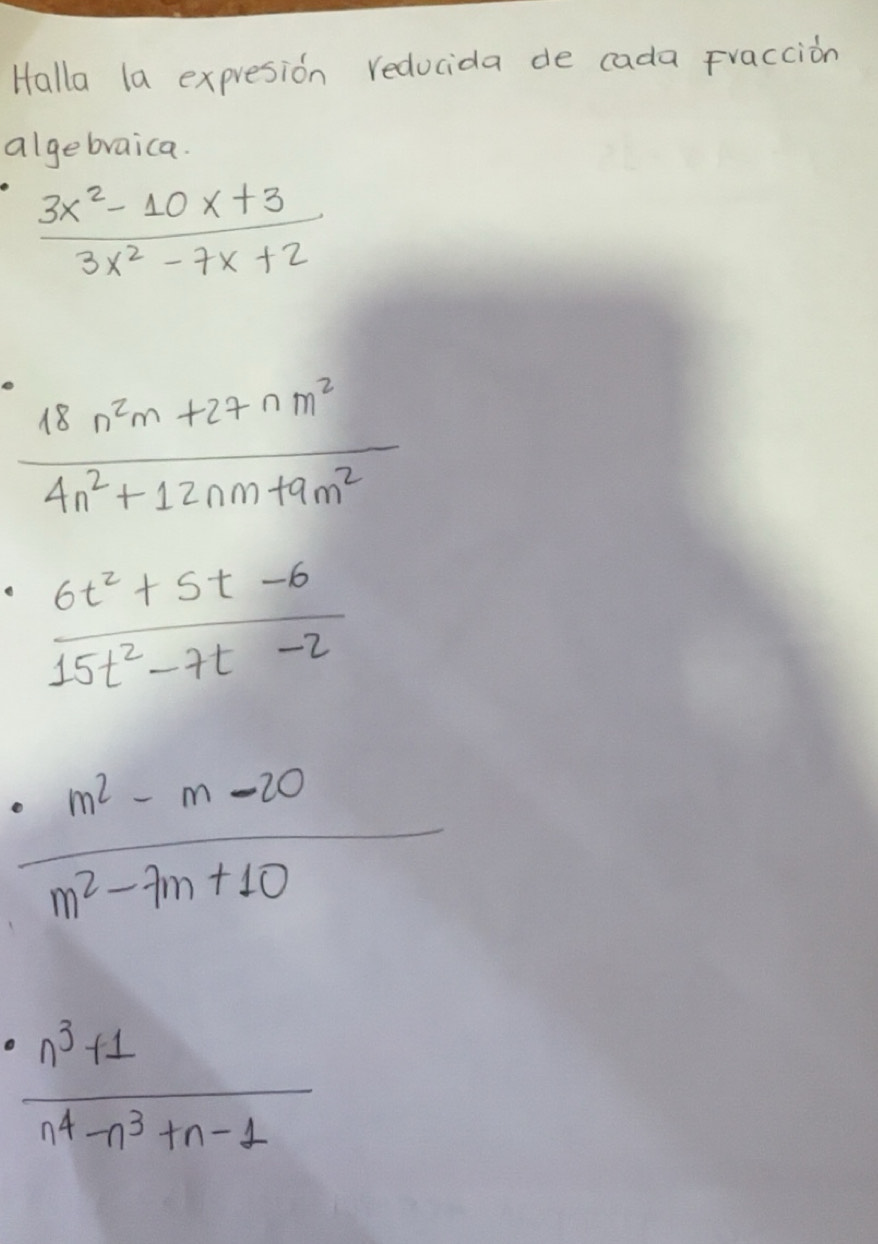 Halla la expresión reducida de cada Fracción
algebraica.
• 3x² - 10x + 3
3x² - 7x + 2
• 18 n²m + 27 n m²
4n² + 12nm + 9m²
• 6t² + 5t - 6
15t² - 7t - 2
• m² - m - 20
m² - 7m + 10
• n³ + 1
n⁴ - n³ + n - 1